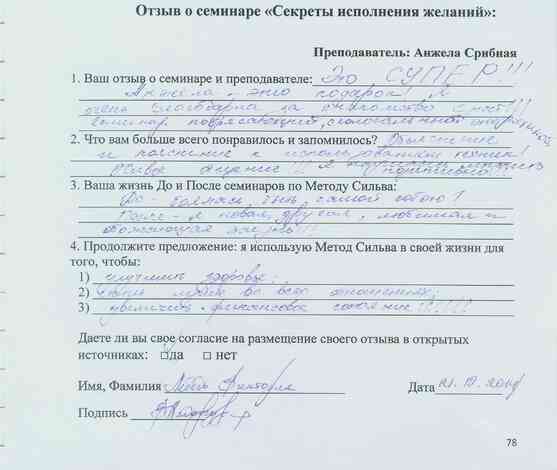 Отзыв о семинаре «Секреты исполнения желаний»:
Преподаватель: Анжела Срибная
1. Ваш отзыв о семинаре и преподавателе: Это СУПЕР!!!
Анжела, это подарок! Я
очень благодарна за знакомство с ней!!!
Семинар потрясающий, с колоссальной
2. Что вам больше всего понравилось и запомнилось?
и пояснение к использованию техник!
3. Ваша жизнь До и После семинаров по Методу Сильва:
До - боялась быть самой собою!
После - я новая, другая, любимая и
обожающая жизнь!!!
4. Продолжите предложение: я использую Метод Сильва в своей жизни для
того, чтобы:
1) улучшить здоровье;
2) во всех отношениях;
3) увеличить финансовое состояние!!!!!
Даете ли вы свое согласие на размещение своего отзыва в открытых
источниках: □да □ нет
Имя, Фамилия
Дата
Подпись
78